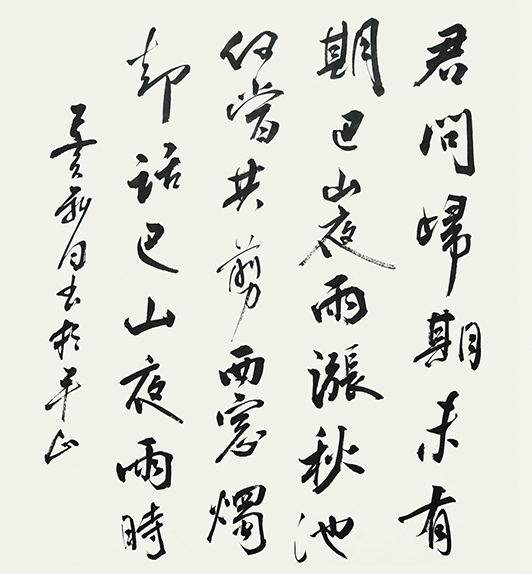 君問歸期未有
期巴山夜雨漲秋池
何當共剪西窓燭
却話巴山夜雨時
书於平山